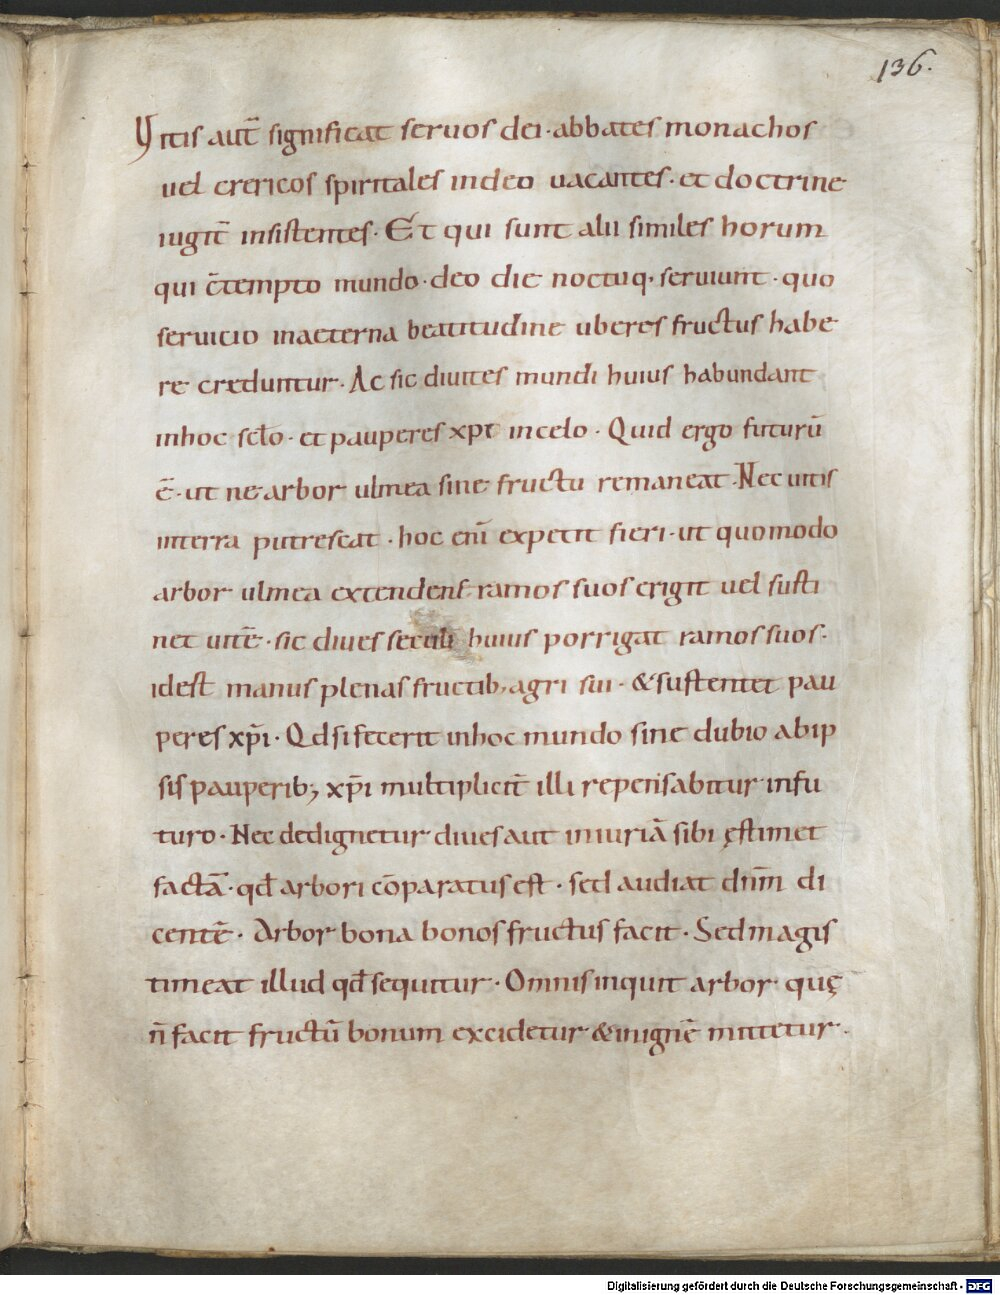 136.
Vitis aut̄ significat seruos dei · abbates monachos
uel crericos spiritales in deo uacantes · et doctrine
iugit̄ insistentes · Et qui sunt alii similes horum
qui c̄tempto mundo · deo die noctuq· seruiunt · quo
seruicio in aeterna beatitudine uberes fructus habe
re creduntur · Ac sic diuites mundi huius habundant
in hoc sclo · et pauperes xpi in celo · Quid ergo futurū
ē · ut ne arbor ulmea sine fructu remaneat · Nec uitis
in terra putrescat · hoc enī expetit fieri · ut quomodo
arbor ulmea extendens ramos suos erigit uel susti
net uitē · sic diues seculi huius porrigat ramos suos ·
id est manus plenas fructib; agri sui · & sustentet pau
peres xp̄i · Qd si fecerit in hoc mundo sine dubio ab ip
sis pauperib; xp̄i multiplicit̄ illi repensabitur in fu
turo · Nec dedignetur diues aut iniuriā sibi ęstimet
factā · qd̄ arbori cōparatus est · sed audiat dnm̄ di
centē · Arbor bona bonos fructus facit · Sed magis
timeat illud qd̄ sequitur · Omnis inquit arbor quę
n̄ facit fructū bonum excidetur & in ignē mittetur ·
Digitalisierung gefördert durch die Deutsche Forschungsgemeinschaft - DFG